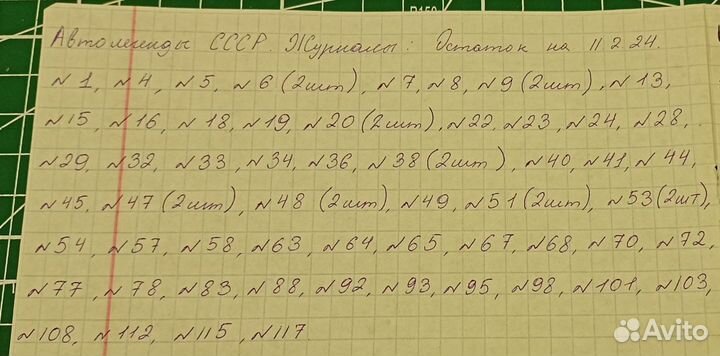 Автолегенды СССР. Журналы: Остаток на 11.2.24.
№1, №4, №5, №6 (2шт), №7, №8, №9 (2шт), №13,
№15, №16, №18, №19, №20 (2шт), №22, №23, №24, №28,
№29, №32, №33, №34, №36, №38 (2шт), №40, №41, №44,
№45, №47 (2шт), №48 (2шт), №49, №51 (2шт), №53 (2шт),
№54, №57, №58, №63, №64, №65, №67, №68, №70, №72,
№77, №78, №83, №88, №92, №93, №95, №98, №101, №103,
№108, №112, №115, №117.
Avito